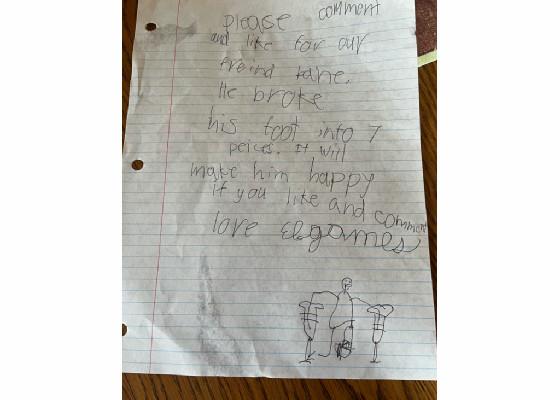 please comment
and like for our
freind kane.
He broke
his foot into 7
peices. It will
make him happy
if you like and comment
love games